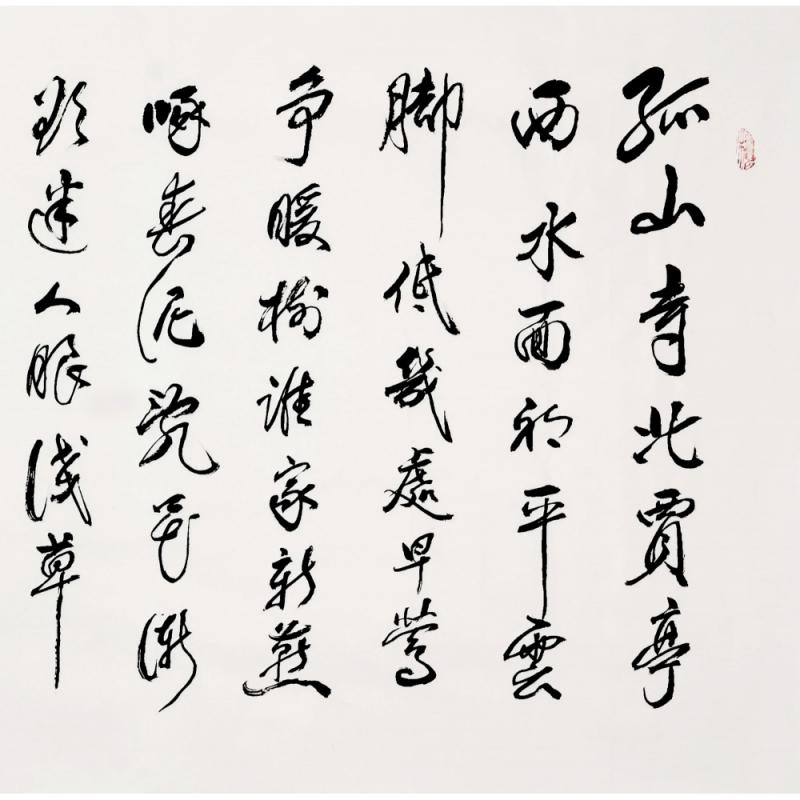 孤山寺北賈亭
西水面初平雲
脚低幾處早鶯
争暖樹誰家新燕
啄春泥亂花漸
欲迷人眼淺草